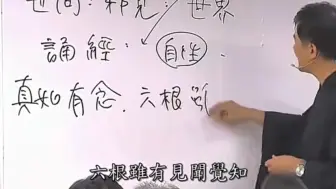 世间：邪見：世界
誦經： 自性 .
真如有念．六根
六根雖有見聞覺知